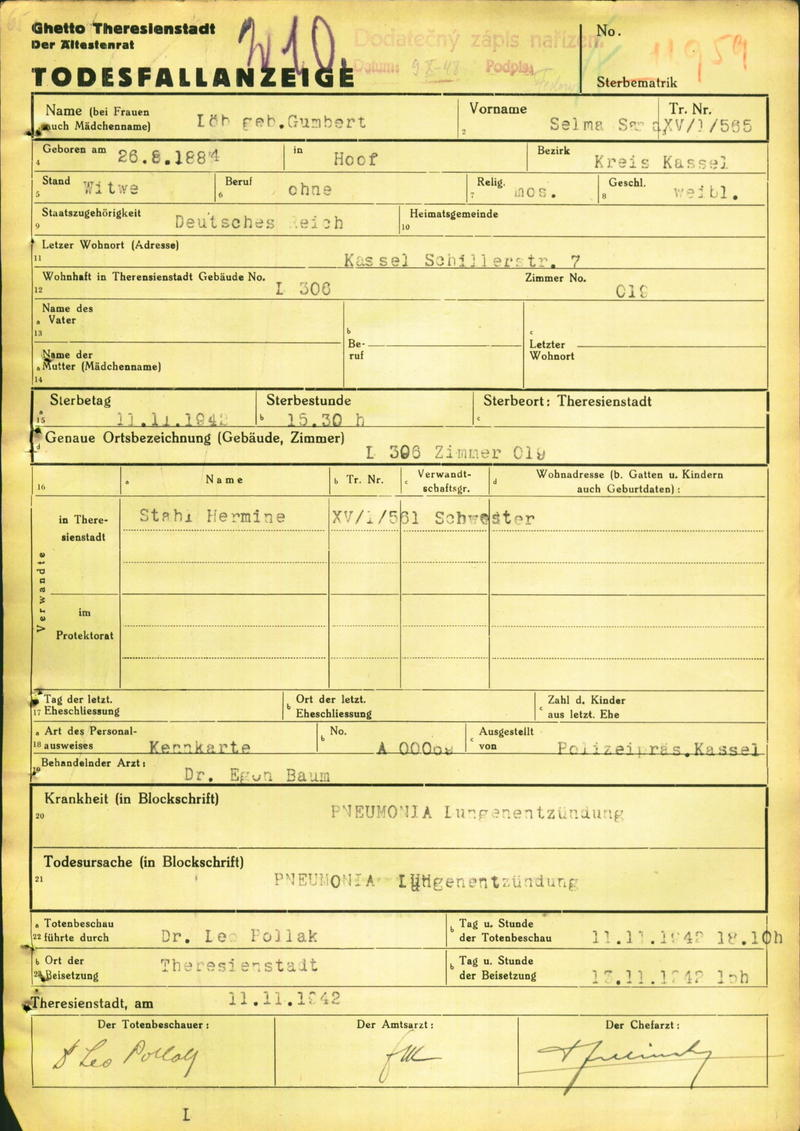 Ghetto Theresienstadt
Der Ältestenrat
TODESFALLANZEIGE
Dodatečný zápis nařízen
Datum: Podpis
No.
Sterbematrik
Name (bei Frauen auch Mädchenname) Löb geb.Gumbert
2 Vorname Selma Sara
Tr. Nr. XV/1/565
4 Geboren am 26.8.1884 in Hoof Bezirk Kreis Kassel
5 Stand Witwe 6 Beruf ohne 7 Relig. mos. 8 Geschl. weibl.
9 Staatszugehörigkeit Deutsches Reich 10 Heimatsgemeinde
11 Letzer Wohnort (Adresse) Kassel Schillerstr. 7
12 Wohnhaft in Therensienstadt Gebäude No. L 306 Zimmer No.
13 a Name des Vater b Beruf c Letzter Wohnort
14 a Name der Mutter (Mädchenname)
15 a Sterbetag 11.11.1942 b Sterbestunde 15.30 h c Sterbeort: Theresienstadt
d Genaue Ortsbezeichnung (Gebäude, Zimmer) L 306 Zimmer
16 a Name b Tr. Nr. c Verwandtschaftsgr. d Wohnadresse (b. Gatten u. Kindern auch Geburtdaten):
Verwandte
in Theresienstadt Hermine XV/1/561 Schwester
im Protektorat
17 a Tag der letzt. Eheschliessung b Ort der letzt. Eheschliessung c Zahl d. Kinder aus letzt. Ehe
18 a Art des Personalausweises Kennkarte b No. c Ausgestellt von Polizeipräs.Kassel
19 Behandelnder Arzt: Dr. Egon Baum
20 Krankheit (in Blockschrift) PNEUMONIA Lungenentzündung
21 Todesursache (in Blockschrift) PNEUMONIA Lungenentzündung
22 a Totenbeschau führte durch Dr. Leo Pollak b Tag u. Stunde der Totenbeschau 11.11.1942 18.10h
23 b Ort der Beisetzung Theresienstadt b Tag u. Stunde der Beisetzung
Theresienstadt, am 11.11.1942
Der Totenbeschauer: Der Amtsarzt: Der Chefarzt:
Dr Leo Pollak
I